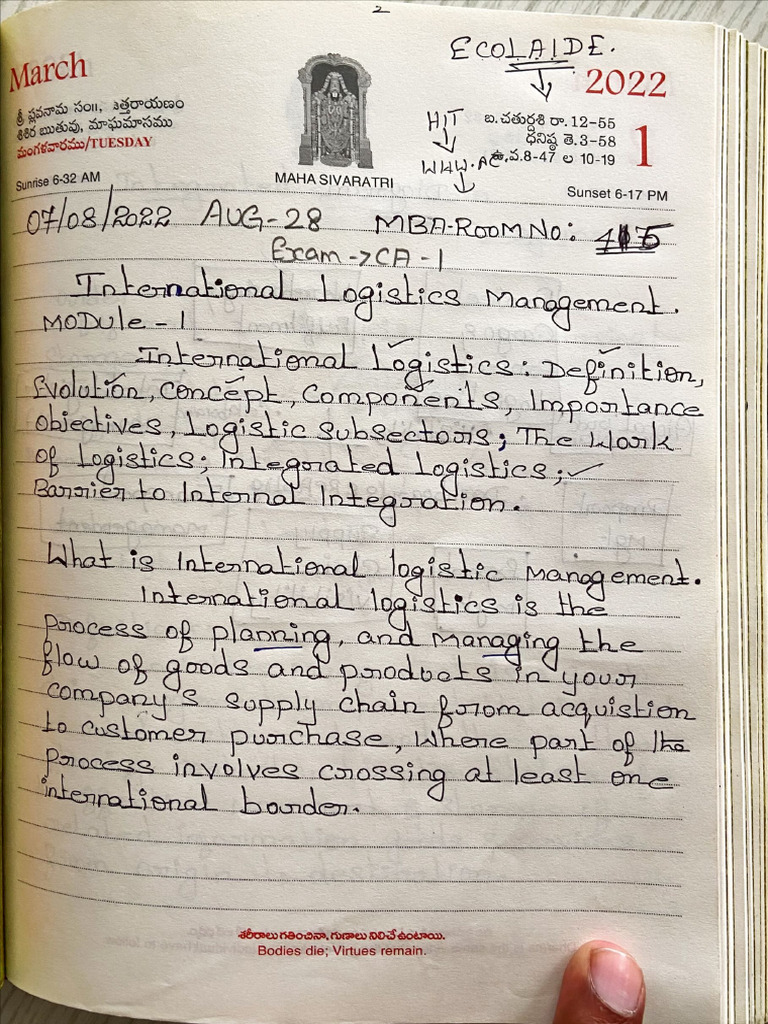 2
ECOLAIDE.
March
2022
శ్రీ ప్లవనామ సం॥, ఉత్తరాయణం
శిశిర ఋతువు, మాఘమాసము
మంగళవారము/TUESDAY
HIT
బ.చతుర్దశి రా. 12-55
ధనిష్ఠ తె.3-58
ఉ.వ.8-47 ల 10-19
1
Sunrise 6-32 AM
MAHA SIVARATRI
Sunset 6-17 PM
07/08/2022 AUG-28 MBA-ROOM NO:
Exam -> CA - 1
International Logistics Management.
MODULe - 1
International Logistics: Definition,
Evolution, Concept, Components, Importance
objectives, Logistic Subsectors; The Work
of Logistics; Integrated Logistics;
Barrier to Internal Integration.
What is International logistic management.
International logistics is the
process of planning, and managing the
flow of goods and products in your
company's supply chain from acquistion
to customer purchase, where part of the
process involves crossing at least one
international border.
శరీరాలు గతించినా, గుణాలు నిలిచే ఉంటాయి.
Bodies die; Virtues remain.